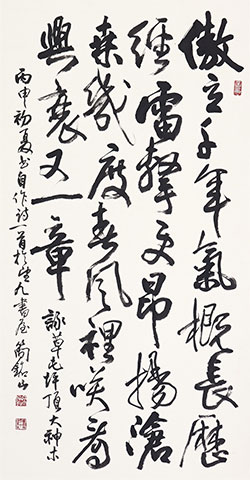 傲立千年氣概長歷
經雷擊更昂揚滄
桑幾度春風裡咲看
興衰又一章
詠草屯坪頂大神木
丙申初夏書自作詩一首於九書屋簡銘山